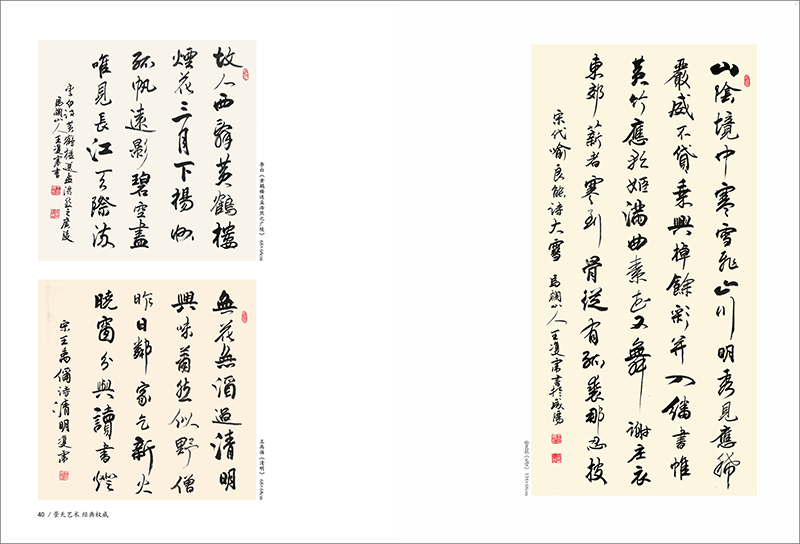 故人西辭黄鶴樓
煙花三月下揚州
孤帆遠影碧空盡
唯見長江天際流
李白诗黄鶴樓送孟浩然之廣陵
山人王書
李白《黄鹤楼送孟浩然之广陵》 68×68cm
無花無酒過清明
興味蕭然似野僧
昨日鄰家乞新火
曉窗分與讀書燈
宋王禹偁诗清明
王禹偁《清明》 68×68cm
40 / 景天艺术 经典权威
山陰境中寒雪飛山川明秀見應稀
嚴威不貸乘興棹餘彩并入繙書帷
黄竹應歌姬滿曲素花又舞謝庄衣
東郊薪者寒到骨從有孤裘那忍披
宋代喻良能诗大雪
山人王書於咸陽
喻良能《大雪》